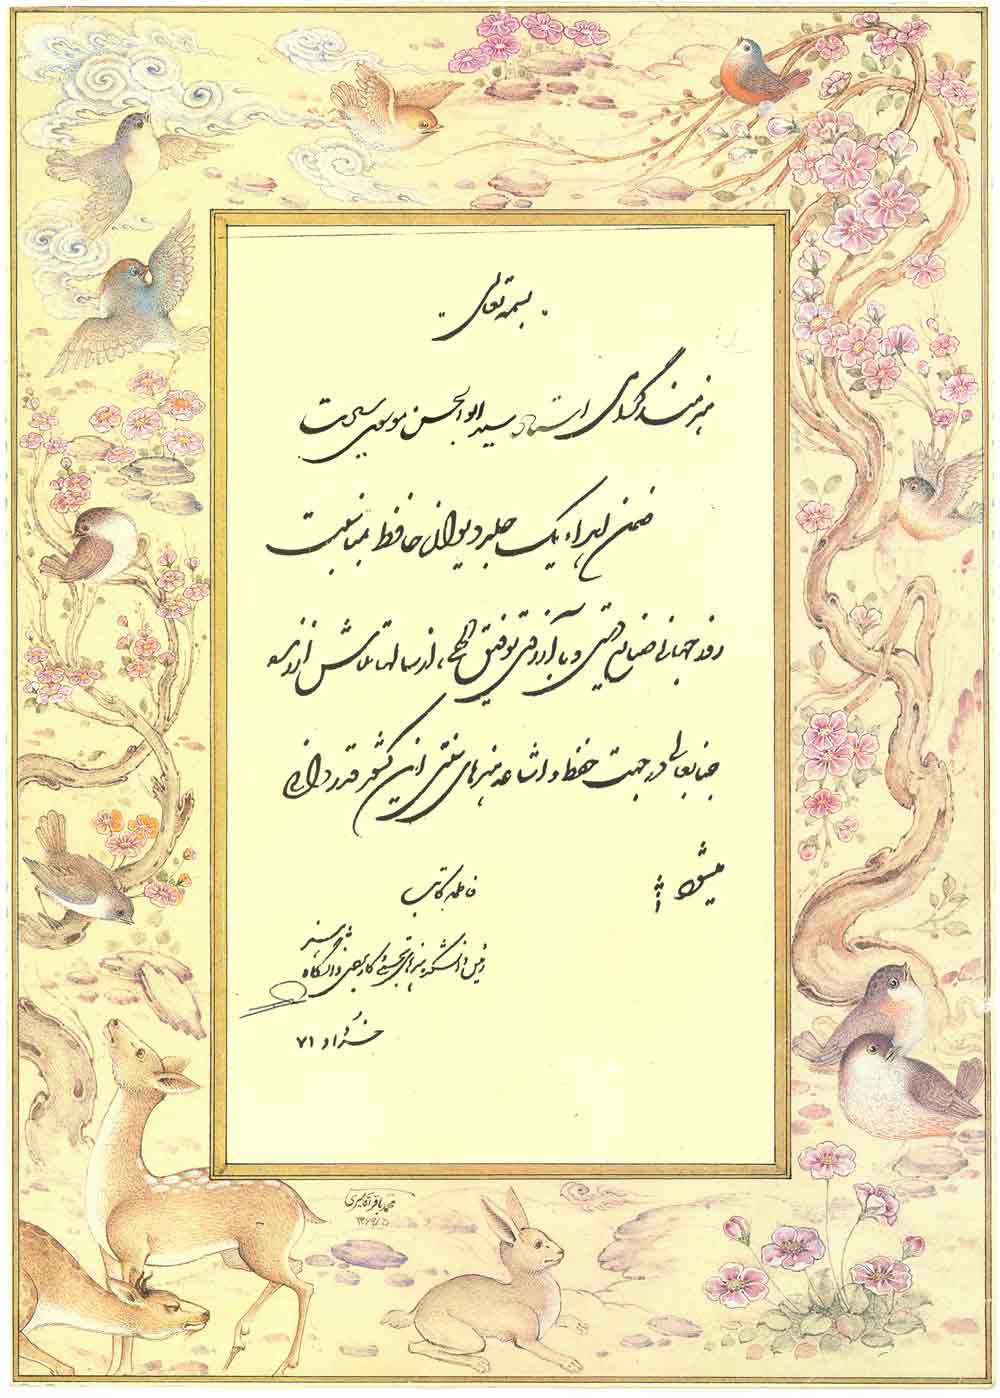 بسمه تعالی
هنرمند گرامی استاد سید ابوالحسن موسوی سیرت
ضمن اهداء یک جلد دیوان حافظ بمناسبت
روز جهانی صنایع دستی و با آرزوی توفیق از سالها تلاش ارزنده
جنابعالی در جهت حفظ و اشاعه هنرهای سنتی این کشور قدردانی
میشود
فاطمه کاتب
رئیس دانشکده هنرهای تجسمی و کاربردی دانشگاه هنر
خرداد ۷۱
محمد باقر آقامیری